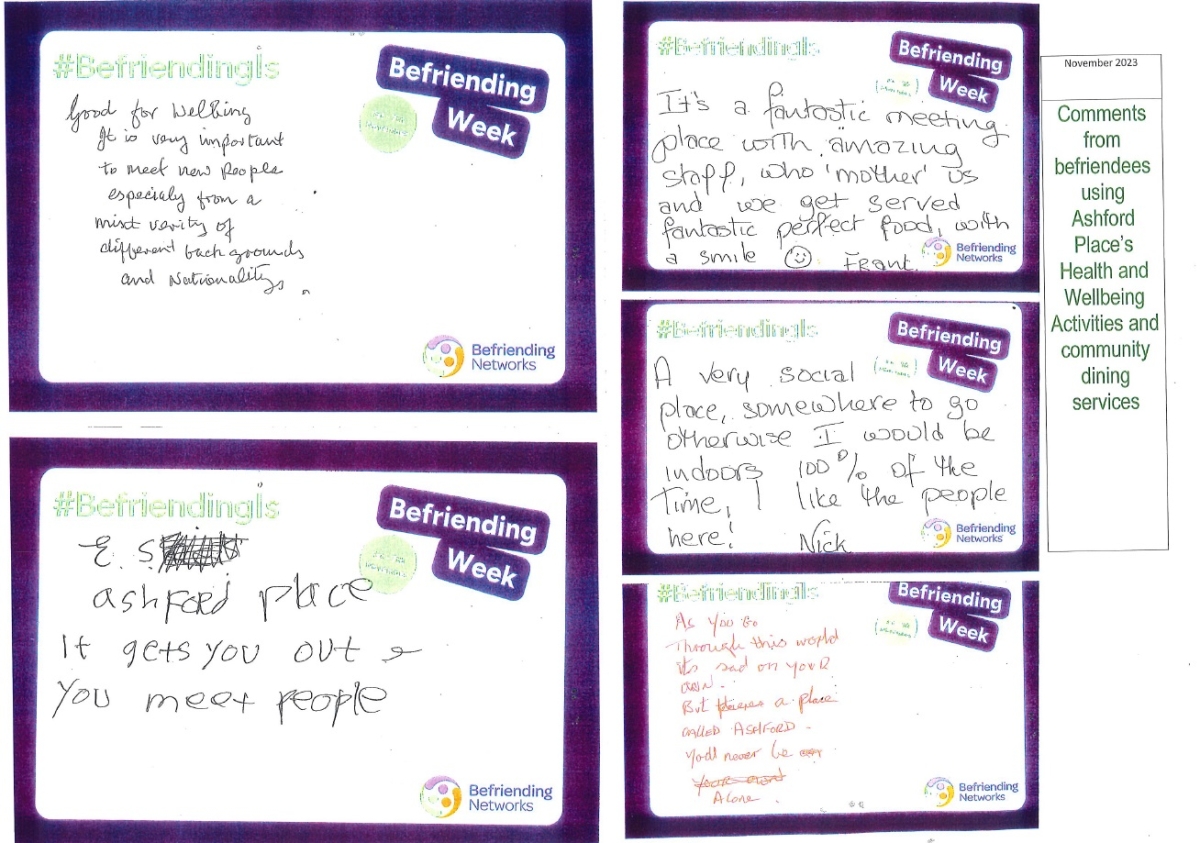 #BefriendingIs
Befriending
Week
Good for Welbing
It is very important
to meet new People
especialy from a
mixt verity of
different back grounds
and Nationalitys.
Befriending
Networks
#BefriendingIs
Befriending
Week
E. S
ashford place
It gets you out &
You meet people
Befriending
Networks
#BefriendingIs
Befriending
Week
It's a fantastic meeting
place with "amazing
staff, who 'mother' us
and we get served
fantastic perfect food, with
a smile ☺ Frank.
Befriending
Networks
#BefriendingIs
Befriending
Week
A very social
place, somewhere to go
otherwise I would be
indoors 100% of the
Time, I like the people
here! Nick
Befriending
Networks
#BefriendingIs
Befriending
Week
As you Go
Through this world
its sad on your
own.
But theres a place
called ASHFORD
Youll never be
Alone.
Befriending
Networks
November 2023
Comments
from
befriendees
using
Ashford
Place's
Health and
Wellbeing
Activities and
community
dining
services